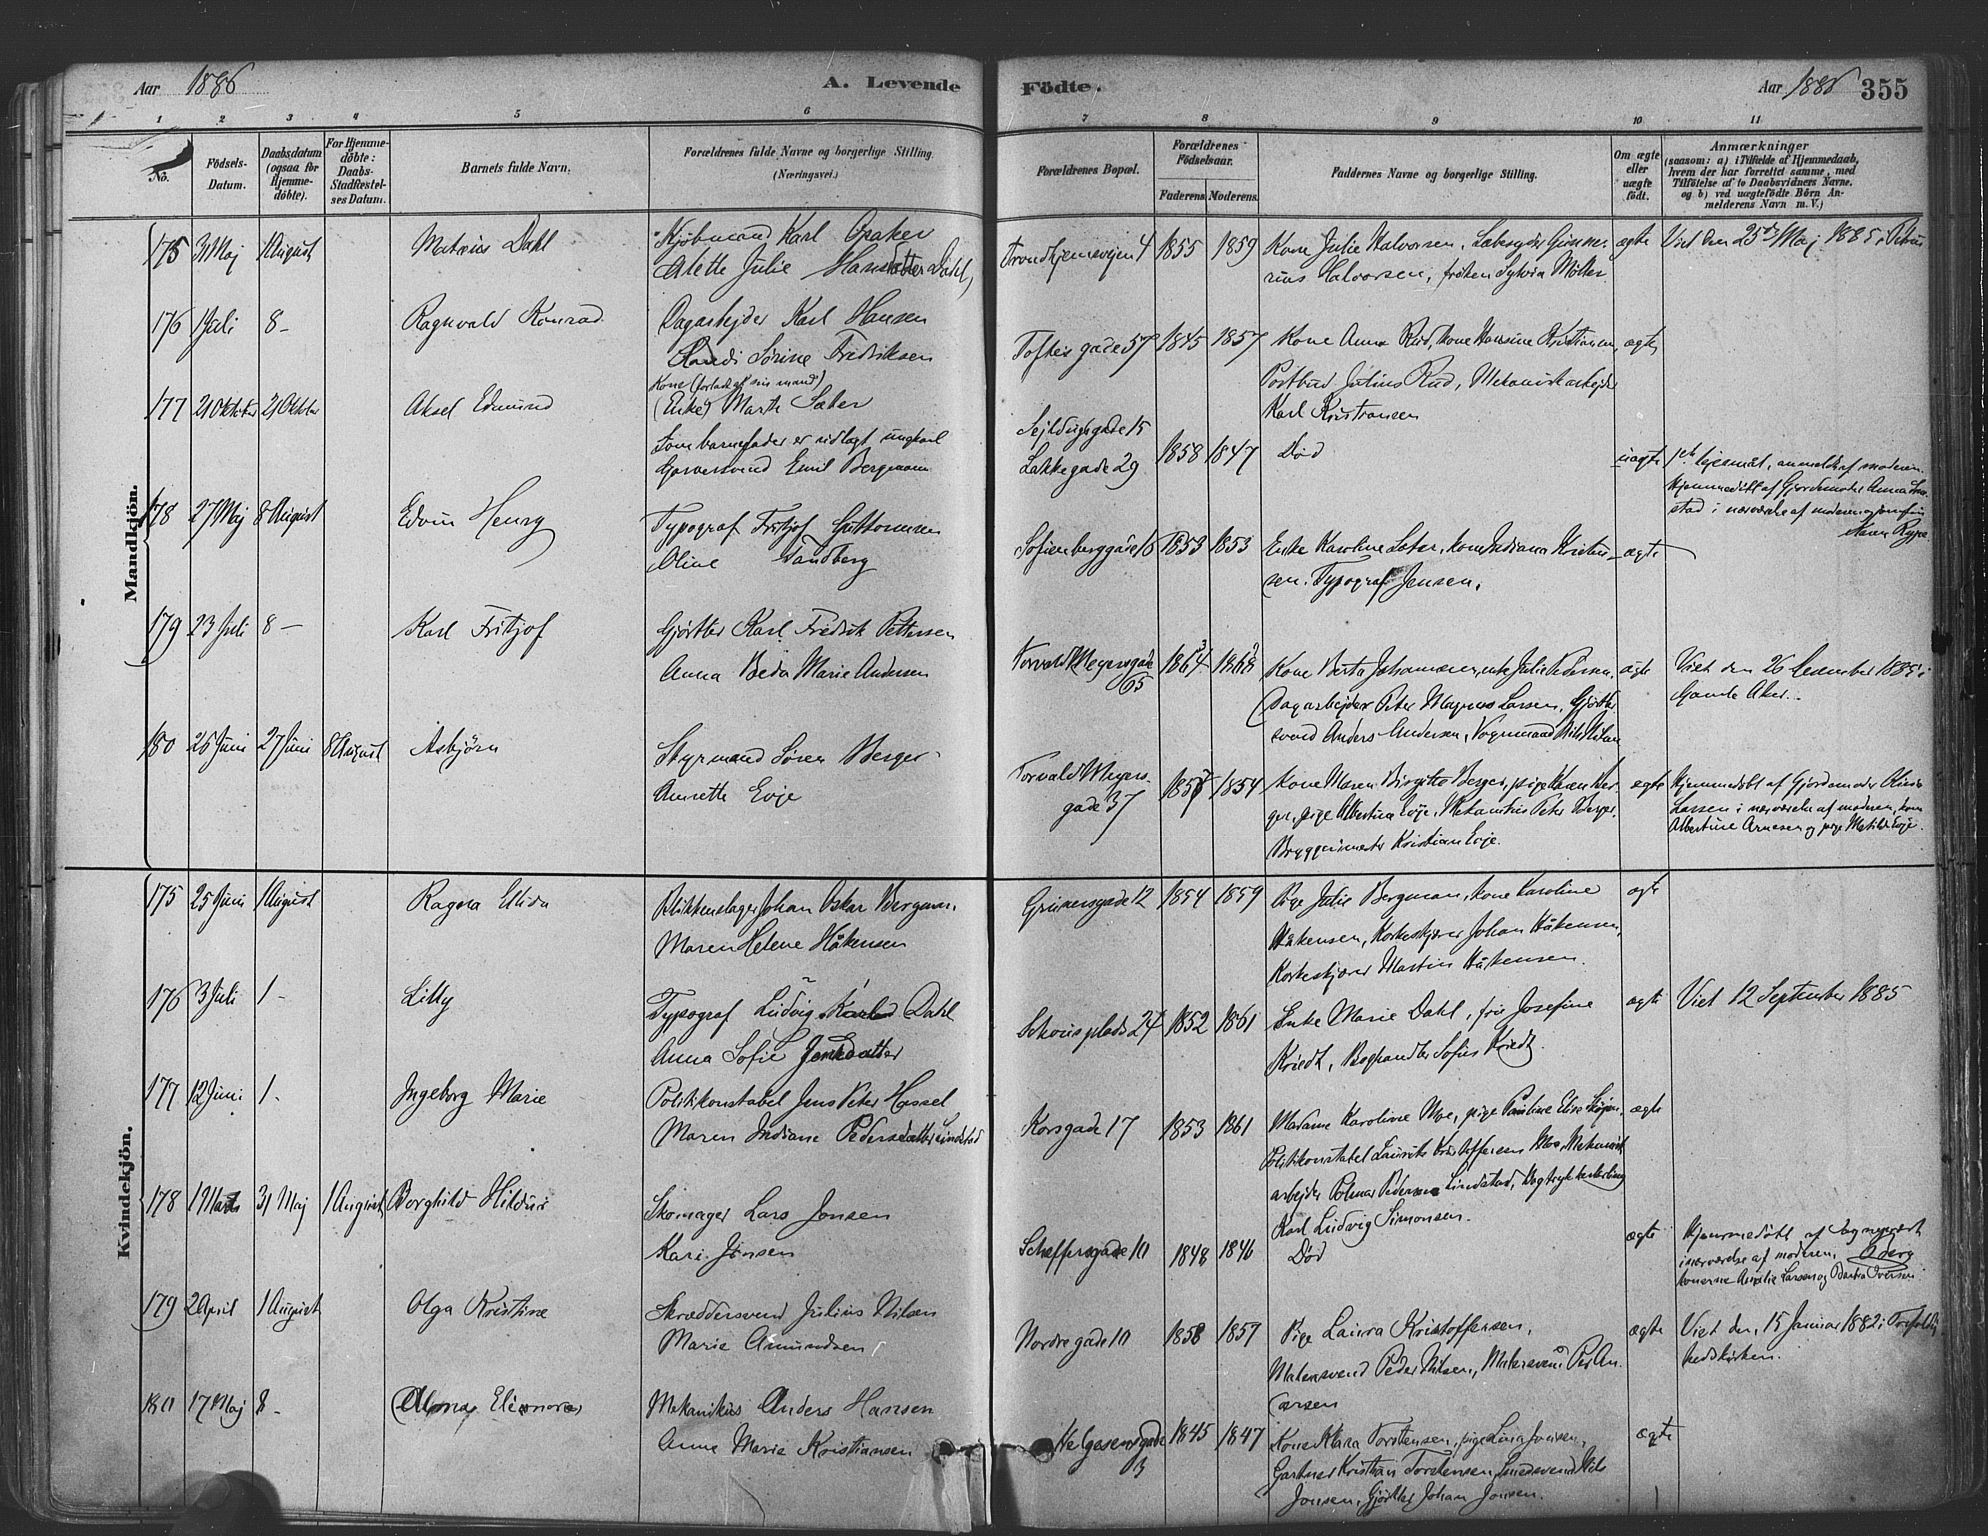 Aar 1886 A. Levende
1 2 3 4 5 6
No. Födsels-Datum. Daabsdatum (ogsaa for Hjemmedöbte). For Hjemmedöbte: Daabs-Stadfæstelses Datum. Barnets fulde Navn. Forældrenes fulde Navne og borgerlige Stilling. (Næringsvei.)
Mandkjön.
175 3 Maj 1 August Matæus Dahl Kjöbmand Karl Opaker
Alette Julie Hansdatter Dahl
176 1 Juli 8 – Ragnvald Konrad Dagarbejder Karl Hansen
Sörine Fredriksen
Kone (forladt af sin mand)
177 21 Oktober 21 Oktober Aksel Edmund (Enke) Marte Sæter
Som barnefader er udlagt ungkarl
Garversvend Emil Bergmann
178 27 Maj 8 August Edvin Henry Typograf Fritjof Guttormsen
Oline Sandberg
179 23 Juli 8 – Karl Fritjof Gjörtler Karl Fredrik Pettersen
Anna Beda Marie Andersen
180 26 Juni 27 Juni 8 August Asbjörn Styrmand Sören Berger
Annette Evje
Kvindekjön.
175 25 Juni 1 August Ragna Elida Blikkenslager Johan Oskar Bergman
Maren Helene Håkensen
176 3 Juli 1 – Lilly Typograf Ludvig Karl Dahl
Anna Sofie Jensdatter
177 12 Juni 1 – Ingeborg Marie Politikonstabel Jens Peter Hassel
Maren Indiane Pedersdatter Lindstad
178 1 Marts 31 Maj 1 August Borghild Hildur Skomager Lars Jonsen
Kari Jönsen
179 2 April 1 August Olga Kristine Skræddersvend Julius Nilsen
Marie Amundsen
180 17 Maj 8 – Alma Eleonora Mekanikus Anders Hansen
Anne Marie Kristiansen
Födte. Aar 1886 355
7 8 9 10 11
Forældrenes Bopæl. Forældrenes Födselsaar. Faderens Moderens Faddernes Navne og borgerlige Stilling. Om ægte eller uægte födt. Anmærkninger (saasom: a) i Tilfælde af Hjemmedaab, hvem der har forrettet samme, med Tilföielse af to Daabsvidners Navne, og b) ved uægtefödte Börn Anmelderens Navn m. V.)
Trondhjemsvejen 4 1855 1859 Kone Julie Halvorsen, Læbesyder Gunne- ægte Viet den 25de Maj 1885 i Petrus
rius Halvorsen, fröken Sylvia Möller
Toftes gade 57 1845 1857 Kone Anna Rud, kone Hansine Kristiansen, ægte
Postbud Julius Rud, Mekanisk arbejder
Karl Kristiansen
Sejldugsgade 15
Lakkegade 29 1858 1847 Död uægte 1ste lejermål, anmeldt af moderen.
Hjemmedöbt af Gjordemoder Anna
stad i nærværelse af moderen og jomfru
Rype
Sofienberggade 16 1853 1853 Enke Karoline Sæter, kone Indiana Kristen- ægte
sen. Typograf Jensen.
Torvald Meyersgade 65 1864 1868 Kone Berta Johannesen, enke Julie Pedersen, ægte Viet den 26 December 1885 i
Dagarbejder Peter Magnus Larsen, Gjörtler- Gamle Aker.
svend Anders Andersen, Vognmand Nils Nilsen
Torvald Meyers-
gade 37 1857 1854 Kone Maren Birgitte Berger, pige Karen Ber- ægte Hjemmedöbt af Gjordemoder Oline
ger, pige Albertine Evje, Mekanikus Peter Berger, Larsen i nærværelse af moderen, kone
Bryggerimester Kristian Evje. Albertine Arnesen og pige Matilde Evje.
Grünersgade 12 1854 1859 Pige Julie Bergman, kone Karoline ægte
Håkensen, Korkeskjærer Johan Håkensen,
Korkeskjærer Martin Håkensen.
Schous plads 24 1852 1861 Enke Marie Dahl, frü Josefine ægte Viet 12 September 1885
Kriedt, Boghandler Sofus Kriedt.
Korsgade 17 1853 1861 Madame Karoline Moe, pige Pauline Elise ægte
Politikonstabel Laurits Kristoffersen Moe, Mekanisk
arbejder Polmar Pedersen Lindstad, Bogtrykkerlærling
Karl Ludvig Simonsen.
Scheffersgade 10 1848 1846 Död ægte Hjemmedöbt af Sogneprest
i nærværelse af moderen, Öberg
konerne Amalie Larsen og Berta Iversen
Nordre gade 10 1858 1857 Pige Laura Kristoffersen, ægte Viet den 15 Januar 1882 i Trefoldig-
Malersvend Peder Nilsen, Malersvend Per An- hedskirken.
dersen
Helgesensgade
3 1845 1847 Kone Klara Torstensen, pige Lina Jonsen, ægte
Gartner Kristian Torstensen, Smedsvend Nils
Jonsen, Gjörtler Johan Jonsen.